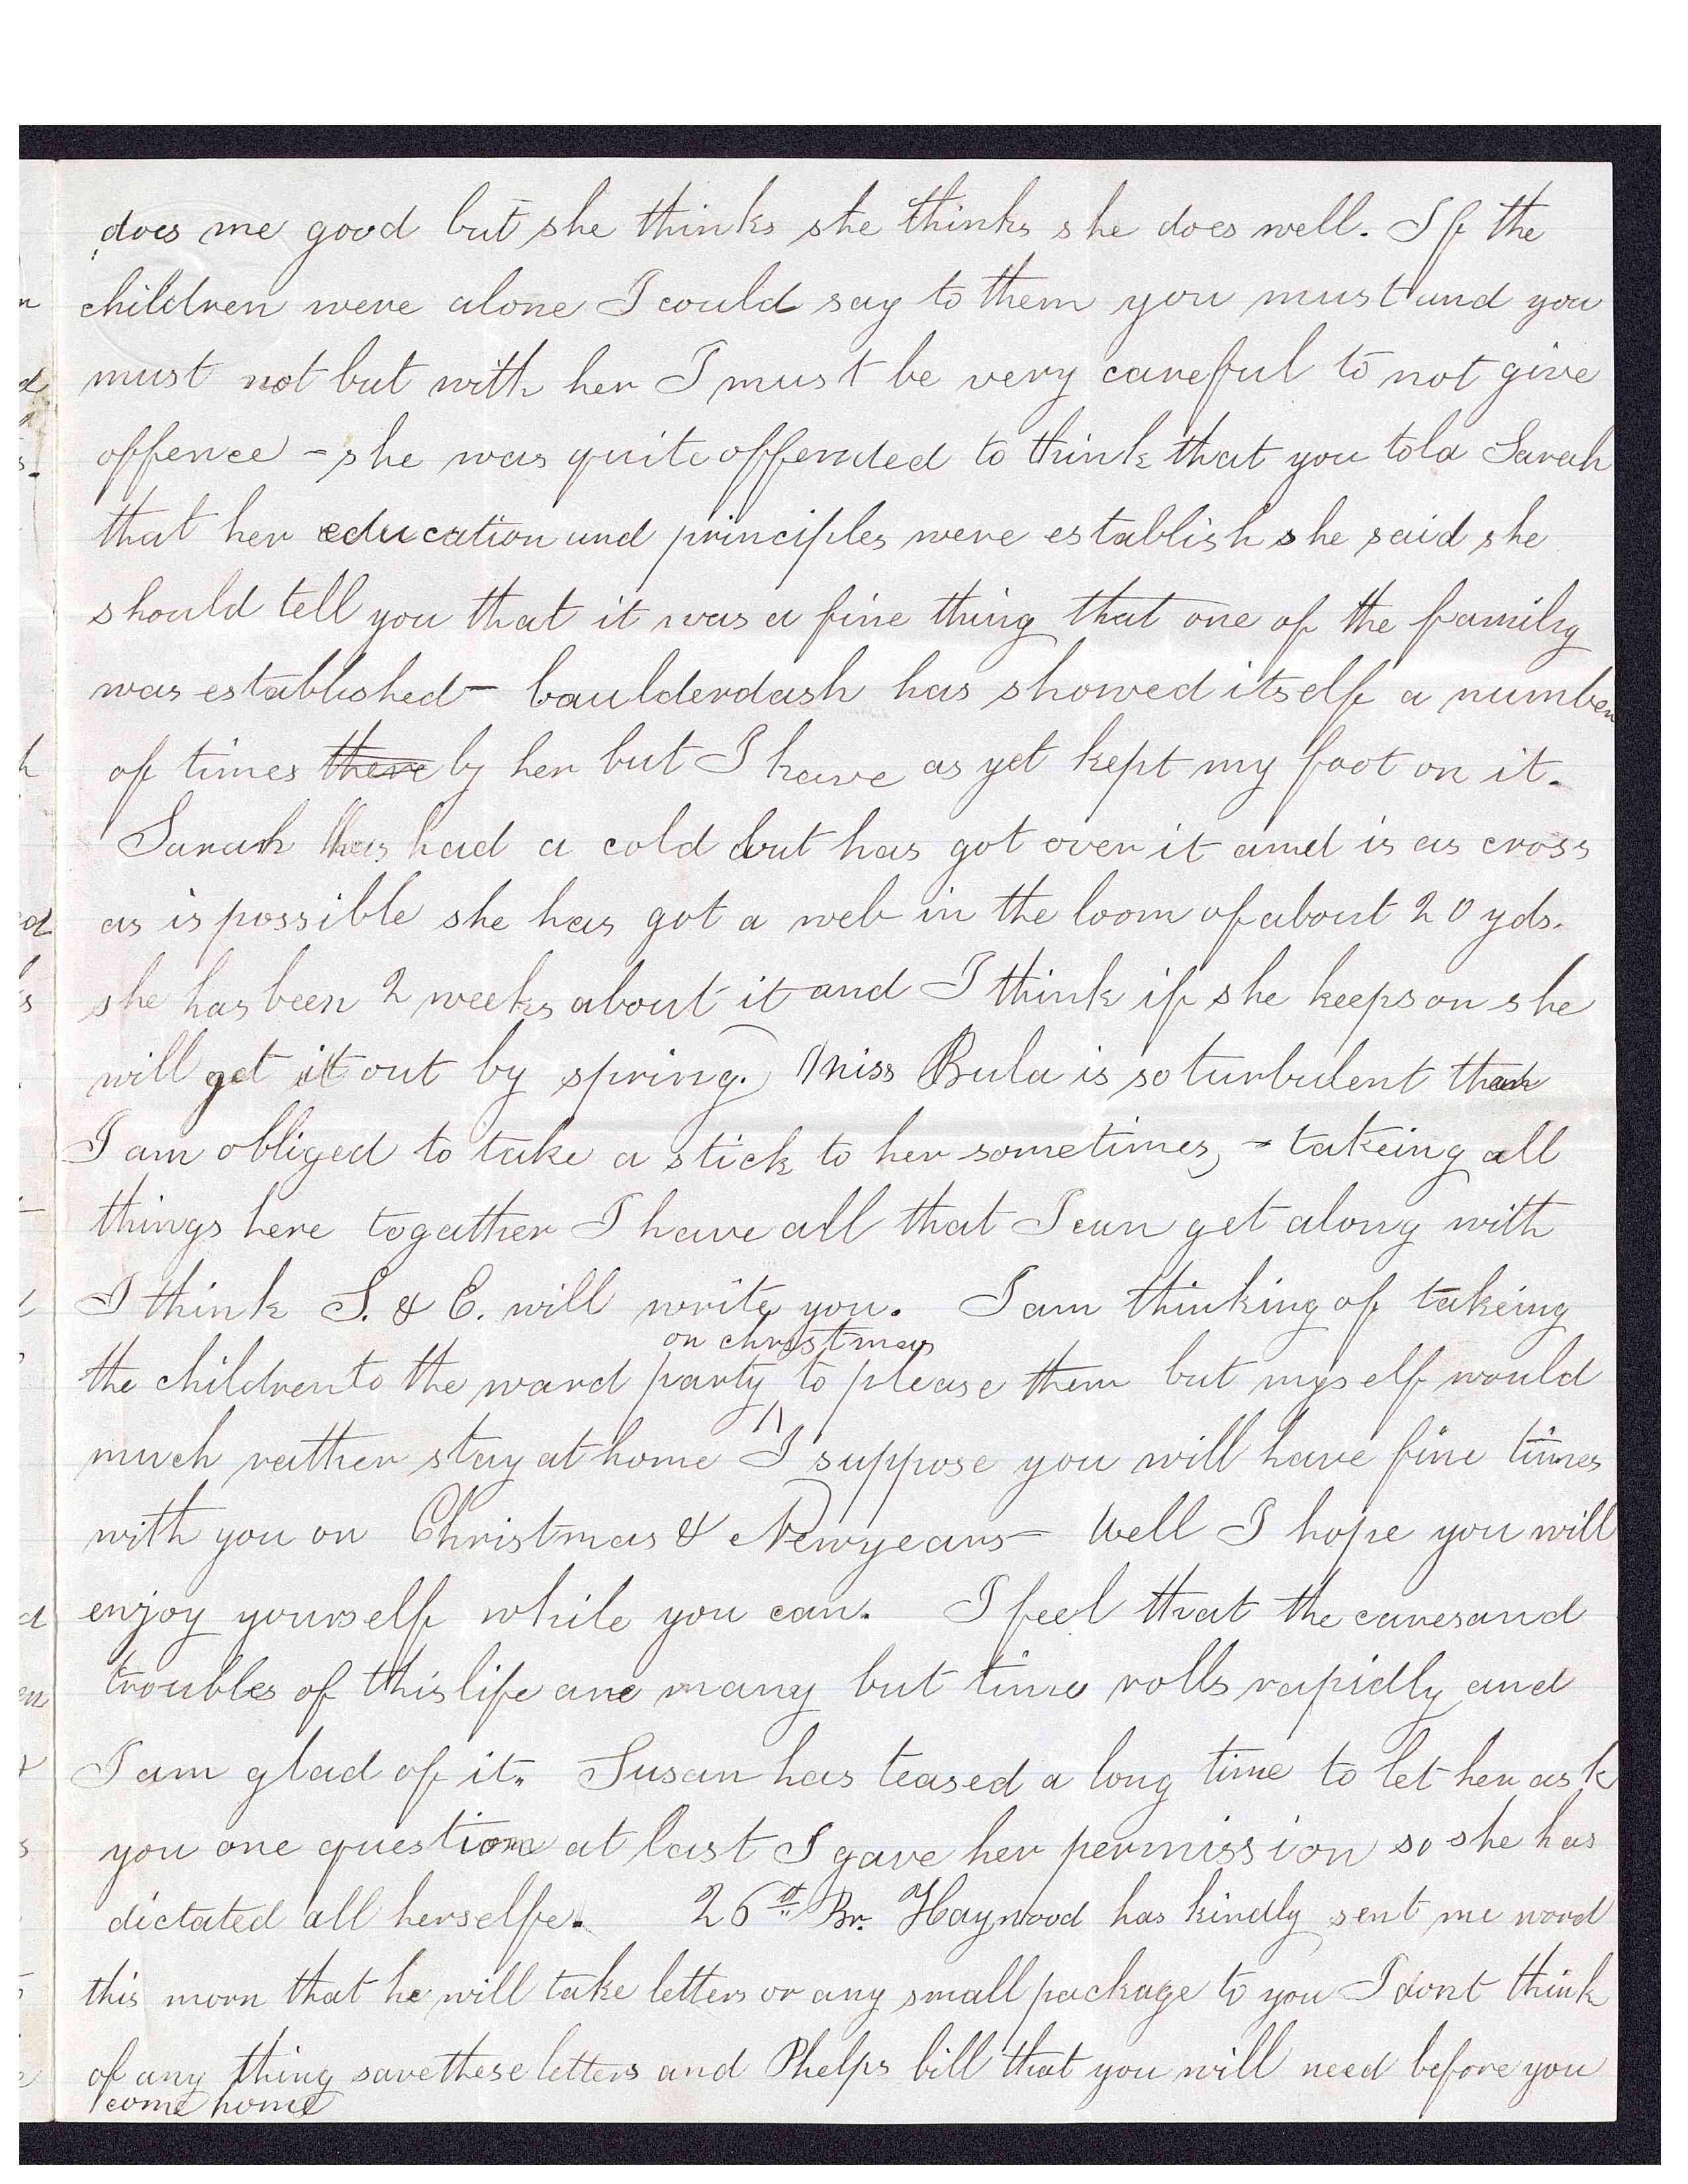 does me good but she thinks she thinks she does well. If the
children were alone I could say to them you must and you
must not but with her I must be very careful to not give
offence - she was quite offended to think that you told Sarah
that her education and principles were establish she said she
should tell you that it was a fine thing that one of the family
was established - baulderdash has showed itself a number
of times there by her but I have as yet kept my foot on it.
Sarah has had a cold but has got over it and is as cross
as is possible she has got a web in the loom of about 20 yds.
she has been 2 weeks about it and I think if she keeps on she
will get it out by spring. Miss Bula is so turbulent that
I am obliged to take a stick to her sometimes, - takeing all
things here togather I have all that I can get along with
I think S. & E. will write you. I am thinking of takeing
on christmas
the children to the ward party to please them but myself would
much rather stay at home I suppose you will have fine times
with you on Christmas & Newyears - Well I hope you will
enjoy yourself while you can. I feel that the cares and
troubles of this life are many but time rolls rapidly and
I am glad of it. Susan has teased a long time to let her ask
you one question at last I gave her permission so she has
dictated all herselfe. 26th Br. Haywood has kindly sent me word
this morn that he will take letters or any small package to you I dont think
of any thing save these letters and Phelps bill that you will need before you
come home